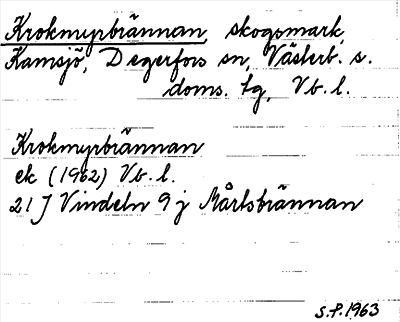 Krokmyrbrännan, skogsmark,
Kamsjö, Degerfors sn, Västerb. s.
doms. tg, Vb. l.
Krokmyrbrännan
ek (1962) Vb. l.
21 J Vindeln 9 j Mårtsbrännan
S.P. 1963